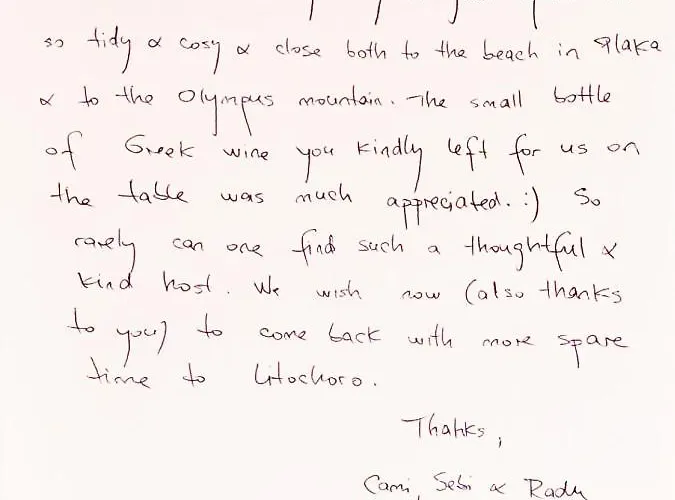 so tidy & cosy & close both to the beach in Plaka
& to the Olympus mountain. The small bottle
of Greek wine you kindly left for us on
the table was much appreciated. :) So
rarely can one find such a thoughtful &
kind host. We wish now (also thanks
to you) to come back with more spare
time to Litochoro.
Thanks,
Cami, Sebi & Radu